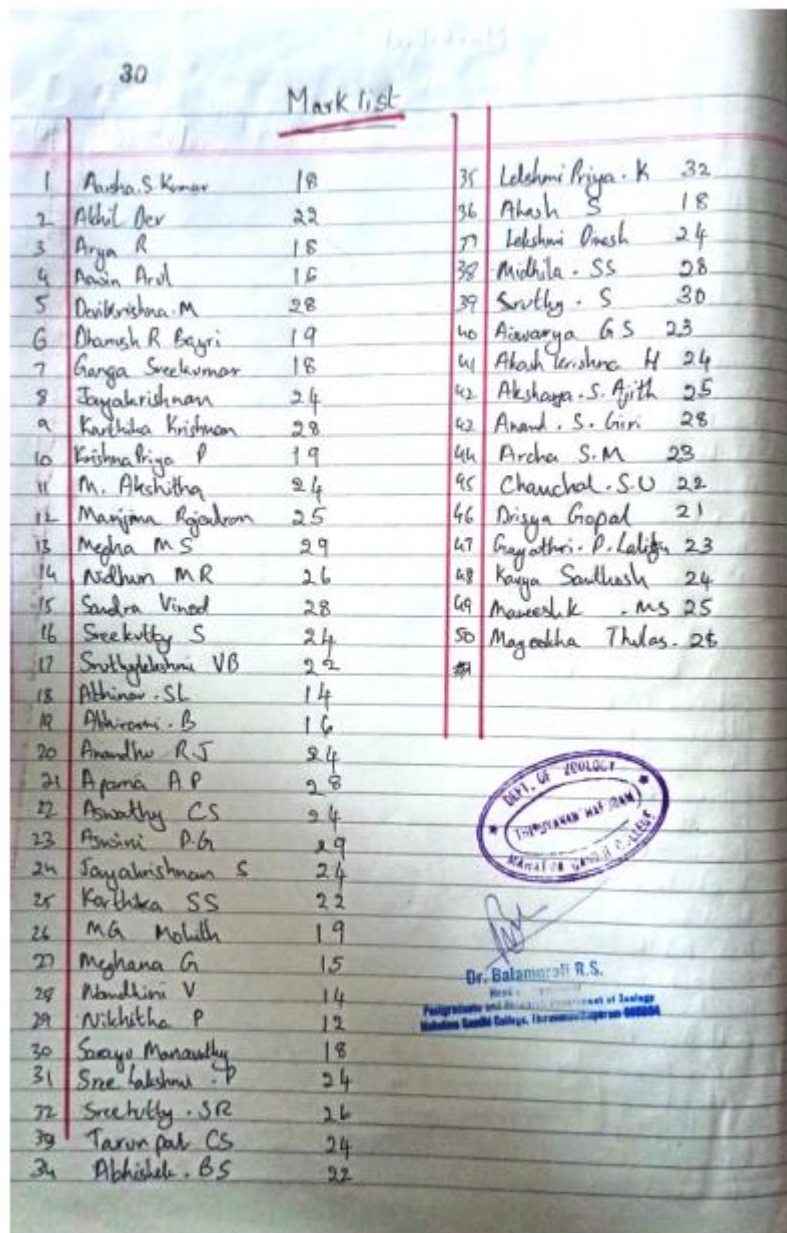 30
Mark list
1 Aarsha.S Kumar 18
2 Akhil Dev 22
3 Arya R 18
4 Aswin Arul 16
5 Devikrishna.M 28
6 Dhanush R Bayri 19
7 Ganga Sreekumar 18
8 Jayakrishnan 24
9 Karthika Krishnan 28
10 Krishna Priya P 19
11 M. Akshitha 24
12 Manjima Rajendran 25
13 Megha MS 29
14 Nidhun MR 26
15 Sandra Vinod 28
16 Sreekutty S 24
17 Sruthylekshmi VB 22
18 Abhinav.SL 14
19 Abhirami.B 16
20 Anandhu RJ 24
21 Aparna AP 28
22 Aswathy CS 24
23 Aswini P.G 29
24 Jayakrishnan S 24
25 Karthika SS 22
26 MG Mohith 19
27 Meghana G 15
28 Nandhini V 14
29 Nikhitha P 12
30 Sarayu 18
31 Sree Lakshmi.P 24
32 Sreekutty.SR 26
33 Tarun pal CS 24
34 Abhishek.BS 22
35 Lekshmi Priya.K 32
36 Akash S 18
37 Lekshmi Dinesh 24
38 Midhila.SS 28
39 Sruthy.S 30
40 Aiswarya GS 23
41 Akash krishna H 24
42 Akshaya.S.Ajith 25
43 Anand.S.Giri 28
44 Archa S.M 23
45 Chanchal.S.U 22
46 Drisya Gopal 21
47 Gayathri.P. 23
48 Kavya Santhosh 24
49 .MS 25
50 Thulas.
DEPT. OF ZOOLOGY
THIRUVANANTHAPURAM
MAHATMA GANDHI COLLEGE
Dr. Balamurali R.S.
Postgraduate and Research Department of Zoology
Mahatma Gandhi College, Thiruvananthapuram-695004